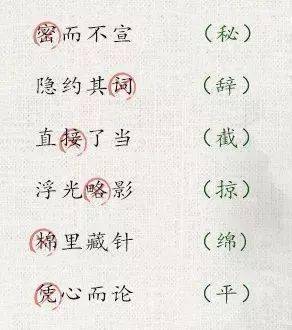 密而不宣 （秘）
隐约其词 （辞）
直接了当 （截）
浮光略影 （掠）
棉里藏针 （绵）
凭心而论 （平）